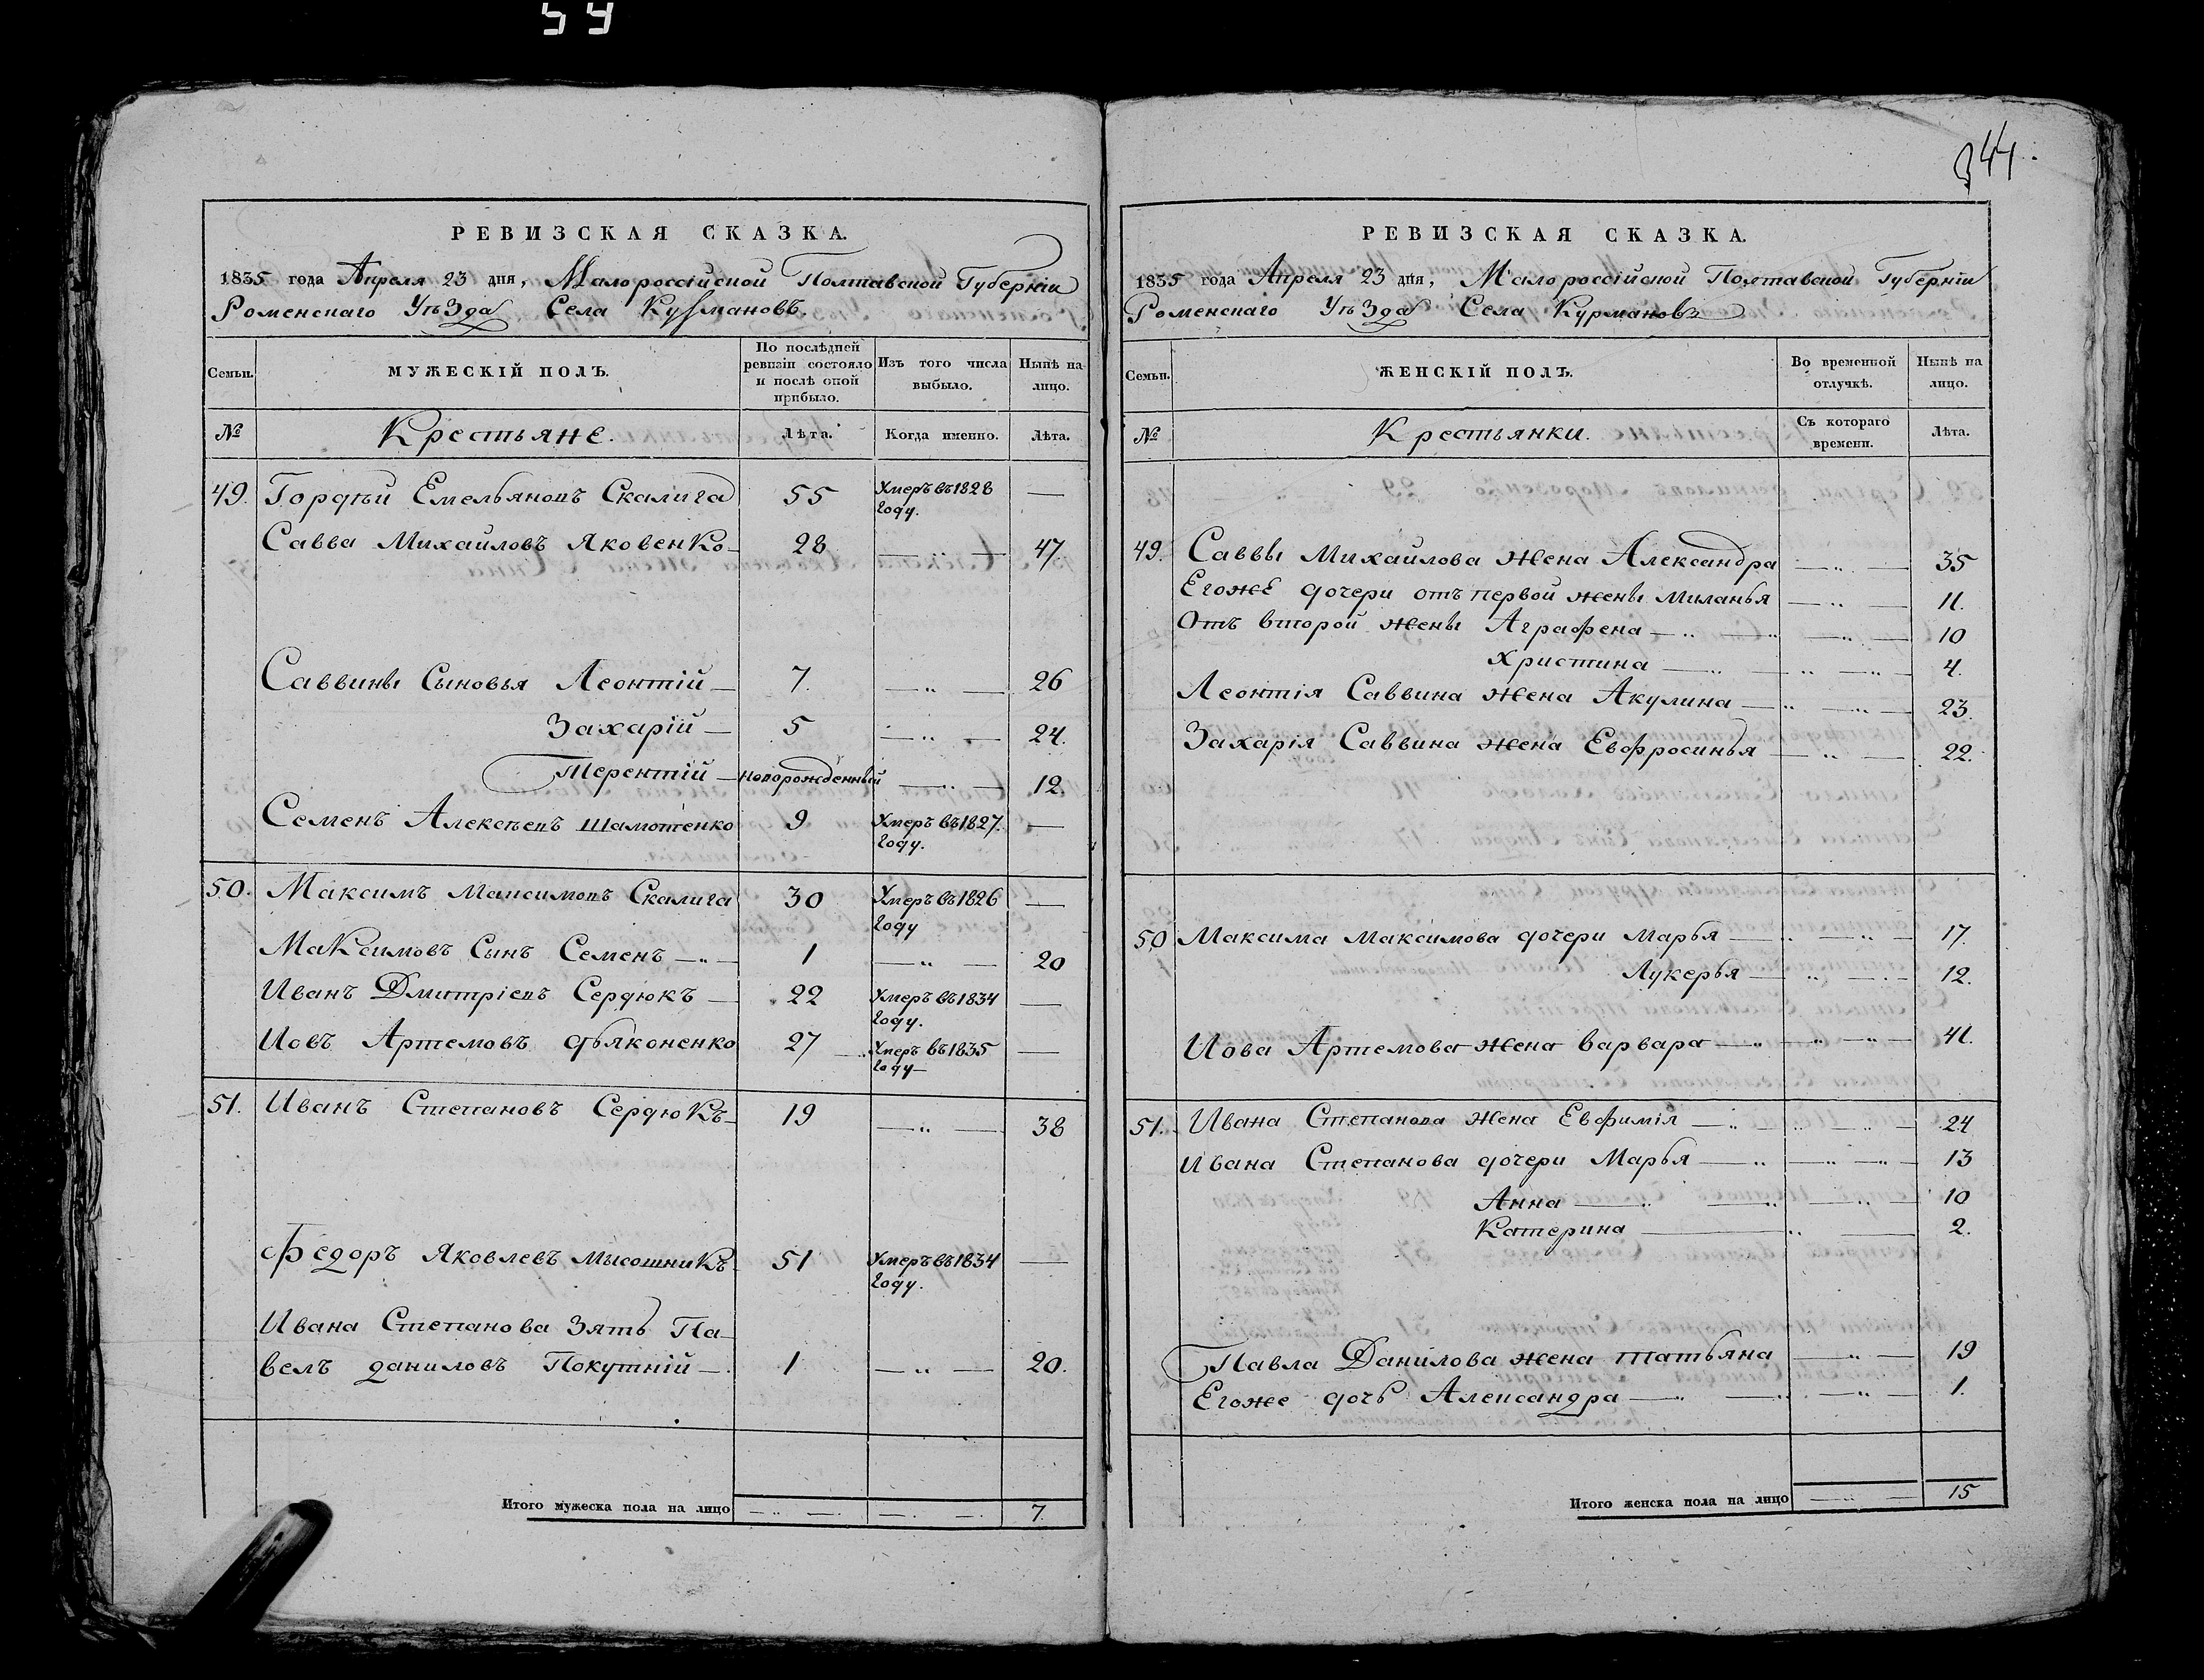 59
344.
РЕВИЗСКАЯ СКАЗКА.
1835 года Апреля 23 дня, Малороссійской Полтавской Губерніи
Роменскаго Уѣзда Села Курмановъ.
Семьи.
МУЖЕСКІЙ ПОЛЪ.
По послѣдней ревизіи состояло и послѣ оной прибыло.
Изъ того числа выбыло.
Нынѣ на лицо.
№ Крестьяне. Лѣта. Когда именно. Лѣта.
49. Гордѣй Емельяновъ Скалига 55 Умеръ въ 1828 году. —
Савва Михайловъ Яковенко — 28 — „ — 47.
Саввины Сыновья Леонтій — 7. — „ — 26
Захарій — 5 — „ — 24.
Терентій — новорожденный — „ — 12.
Семенъ Алексѣевъ Шамотенко 9 Умеръ въ 1827. году. —
50. Максимъ Максимовъ Скалига 30 Умеръ въ 1826 году —
Максимовъ Сынъ Семенъ — „ — 1 — „ — 20
Иванъ Дмитріевъ Сердюкъ — 22 Умеръ въ 1834 году. —
Иовъ Артемовъ дьяконенко 27 Умеръ въ 1835 году —
51. Иванъ Степановъ Сердюкъ — 19 — „ — 38
Федоръ Яковлевъ Мысошникъ 51 Умеръ въ 1834 году. —
Ивана Степанова Зять Па-
велъ даниловъ Покутній — 1 — „ — 20.
Итого мужеска пола на лицо — „ — — „ — 7.
РЕВИЗСКАЯ СКАЗКА.
1835 года Апреля 23 дня, Малороссійской Полтавской Губерніи
Роменскаго Уѣзда Села Курмановъ
Семьи.
ЖЕНСКІЙ ПОЛЪ.
Во временной отлучкѣ.
Нынѣ на лицо.
№ Крестьянки. Съ котораго времени. Лѣта.
49. Саввы Михайлова жена Александра — „ — 35
Егоже дочери отъ первой жены Миланья — „ — 11.
Отъ второй жены Аграфена — „ — 10
Христина — „ — 4.
Леонтія Саввина жена Акулина — „ — 23.
Захарія Саввина жена Евфросинья — „ — 22.
50 Максима Максимова дочери Марья — „ — 17.
Лукерья — „ — 12.
Иова Артемова жена Варвара — „ — 41.
51. Ивана Степанова жена Евфимія — „ — 24
Ивана Степанова дочери Марья — „ — 13
Анна — „ — 10
Катерина — „ — 2.
Павла Данилова жена Татьяна — „ — 19
Егоже дочь Александра — „ — 1.
Итого женска пола на лицо — „ — 15